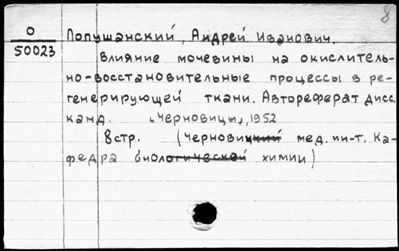 8
О Попушанский, Андрей Иванович.
50023
Влияние мочевины на окислитель-
но-восстановительные процессы в ре-
генерирующей ткани. Автореферат дисс.
канд. "Черновицы", 1952
8 стр. (Черновицкий мед. ин-т. Ка-
федра биологической химии)